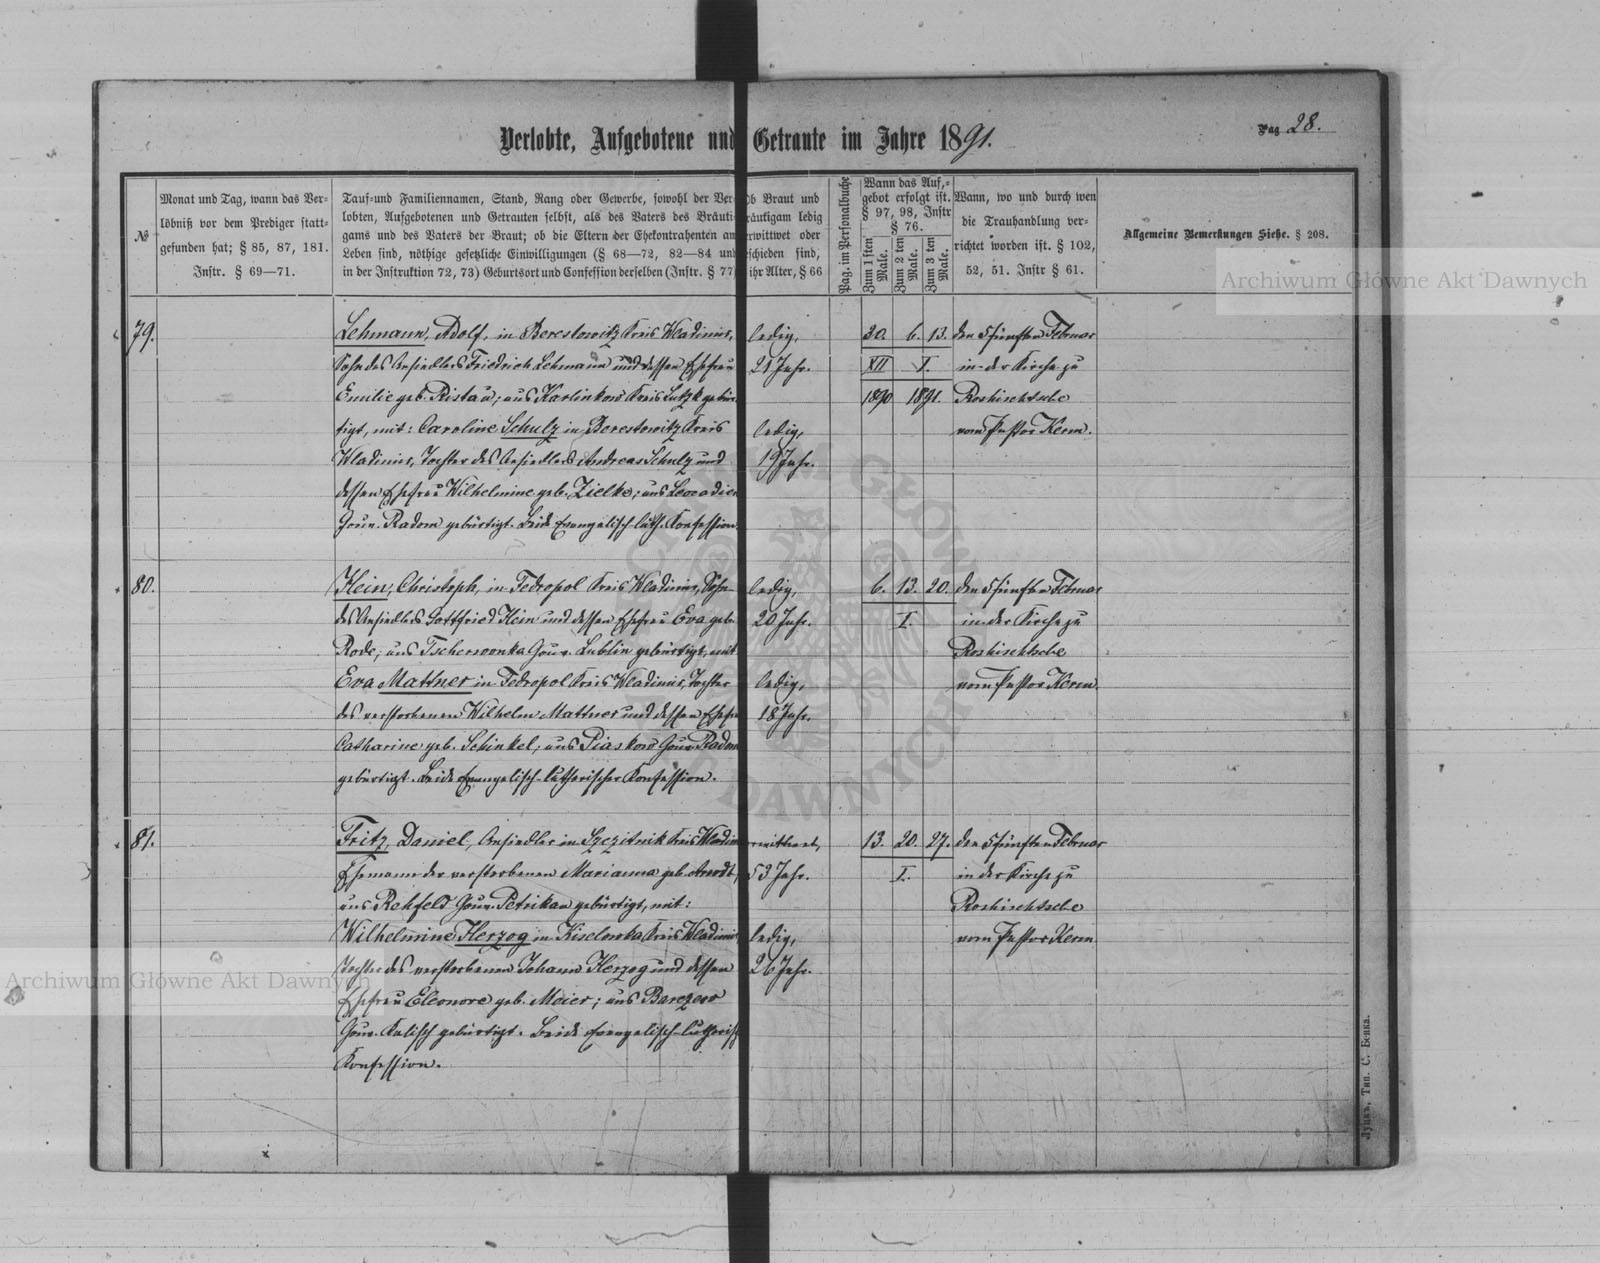 Verlobte, Aufgebotene und Getraute im Jahre 1891.
Pag 28.
№
Monat und Tag, wann das Ver-
löbniß vor dem Prediger statt-
gefunden hat; § 85, 87, 181.
Instr. § 69—71.
Tauf=und Familiennamen, Stand, Rang oder Gewerbe, sowohl der Ver-
lobten, Aufgebotenen und Getrauten selbst, als des Vaters des Bräuti-
gams und des Vaters der Braut; ob die Eltern der Ehekontrahenten am
Leben sind, nöthige gesetzliche Einwilligungen (§ 68—72, 82—84 und
in der Instruktion 72, 73) Geburtsort und Confession derselben (Instr. § 77)
Ob Braut und
räutigam ledig
erwittwet oder
schieden sind,
ihr Alter, § 66
Pag. im Personalbuche
Wann das Auf,=
gebot erfolgt ist.
§ 97, 98, Instr
§ 76.
Zum 1 sten
Male.
Zum 2 ten
Male.
Zum 3 ten
Male.
Wann, wo und durch wen
die Trauhandlung ver-
richtet worden ist. § 102,
52, 51. Instr § 61.
Allgemeine Bemerkungen Siehe. § 208.
79.
Lehmann, Adolf, in Berestowitz Kreis Wladimir,
Sohn des Ansiedlers Friedrich Lehmann und dessen Ehefrau
Emilie geb. Ristau; aus Karlinkow Kreis Lutzk gebür-
tigt, mit: Caroline Schulz in Berestowitz Kreis
Wladimir, Tochter des Ansiedlers Andreas Schulz und
dessen Ehefrau Wilhelmine geb. Zielke; aus Leocadien
Gouv. Radom gebürtigt. Beide Evangelisch-luth. Konfession
ledig,
21 Jahr.
ledig,
19 Jahr.
30. 6. 13.
XII I.
1890 1891.
den 5 fünften Februar
in der Kirche zu
Roshischtsche
vom Pastor Kerm.
80.
Hein, Christoph, in Fedropol Kreis Wladimir, Sohn
des Ansiedlers Gottfried Hein und dessen Ehefrau Eva geb.
Rode; aus Tscherwonka Gouv. Lublin gebürtigt, mit
Eva Mattner in Fedropol Kreis Wladimir, Tochter
des verstorbenen Wilhelm Mattner und dessen Ehefr
Catharine geb. Schinkel; aus Piaskow Gouv. Radom
gebürtigt. Beide Evangelisch-lutherischer Konfession.
ledig,
20 Jahr.
ledig,
18 Jahr.
6. 13. 20.
I.
den 5 fünften Februar
in der Kirche zu
Roshischtsche
vom Pastor Kerm.
81.
Fritz, Daniel, Ansiedler in Szczitnik Kreis Wladim
Ehemann der verstorbenen Marianna geb. Arndt,
aus Rehfeld Gouv. Petrikau gebürtigt, mit:
Wilhelmine Herzog in Kiselowka Kreis Wladimir
Tochter des verstorbenen Johann Herzog und dessen
Ehefrau Eleonore geb. Meier; aus
Gouv. Kalisch gebürtigt. Beide Evangelisch-lutherisch
Konfession.
verwittwet,
53 Jahr.
ledig,
26 Jahr.
13. 20. 27.
I.
den 5 fünften Februar
in der Kirche zu
Roshischtsche
vom Pastor Kerm
Луцкъ, Тип. С. Бенка.
Archiwum Główne Akt Dawnych
Archiwum Główne Akt Dawnych